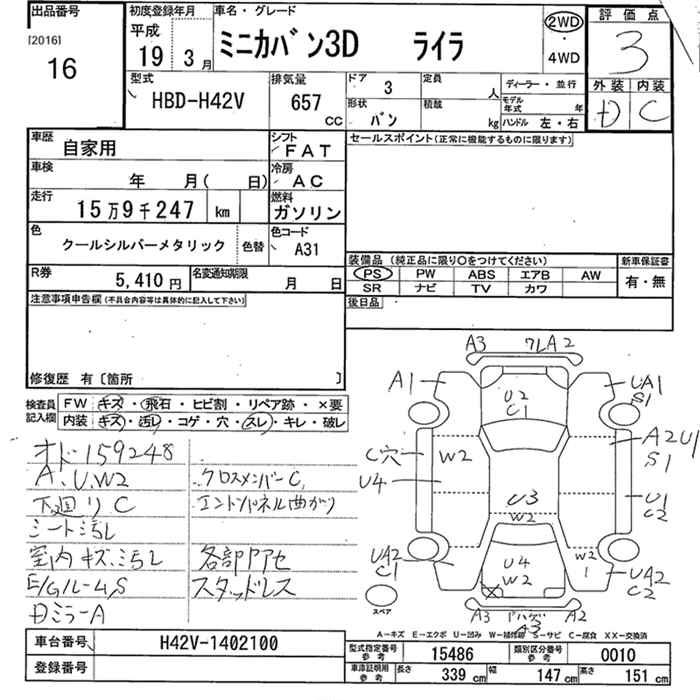 出品番号
[2016]
16
初度登録年月
平成
19年 3月
車名・グレード
ミニカバン3D ライラ
2WD
・
4WD
評価点
3
外装 内装
D C
型式
HBD-H42V
排気量
657 CC
ドア 3
形状 バン
定員 人
積載 kg
ディーラー・並行
モデル年式 年
ハンドル 左・右
車歴
自家用
シフト
FAT
車検
年 月( 日)
冷房
AC
走行
15万9千247 km
燃料
ガソリン
色
クールシルバーメタリック
色替
色コード
A31
R券
5,410円
名変通知期限
月 日
セールスポイント(正常に機能するものに限ります)
装備品 (純正品に限り○をつけてください)
新車保証書
PS PW ABS エアB AW
有・無
SR ナビ TV カワ
後日品
注意事項申告欄(不具合内容等は具体的に記入して下さい)
修復歴 有〔箇所 〕
検査員記入欄
FW キズ・飛石・ヒビ割・リペア跡・×要
内装 キズ・汚レ・コゲ・穴・スレ・キレ・破レ
オド159248
A.U.W2
下廻りC
シート汚レ
室内キズ.汚レ
E/Gルーム,S
Dミラー A
クロスメンバーC,
エンドパネル曲がり
各部ｻﾋﾞ
スタッドレス
A3 ワレA2
A1
U2
C1
UA1
S1
C穴
W2
U4
A2U1
S1
U3
W2
U1
C2
UA2
C1
U4
W2
W2
1
UA2
C2
スペア
A3 A3 A2
A-キズ E-エクボ U-凹み W-補修跡 S-サビ C-腐食 XX-交換済
車台番号
H42V-1402100
登録番号
型式指定番号 参考
15486
類別区分番号 参考
0010
車庫証明用 参考
長さ 339 cm
幅 147 cm
高さ 151 cm